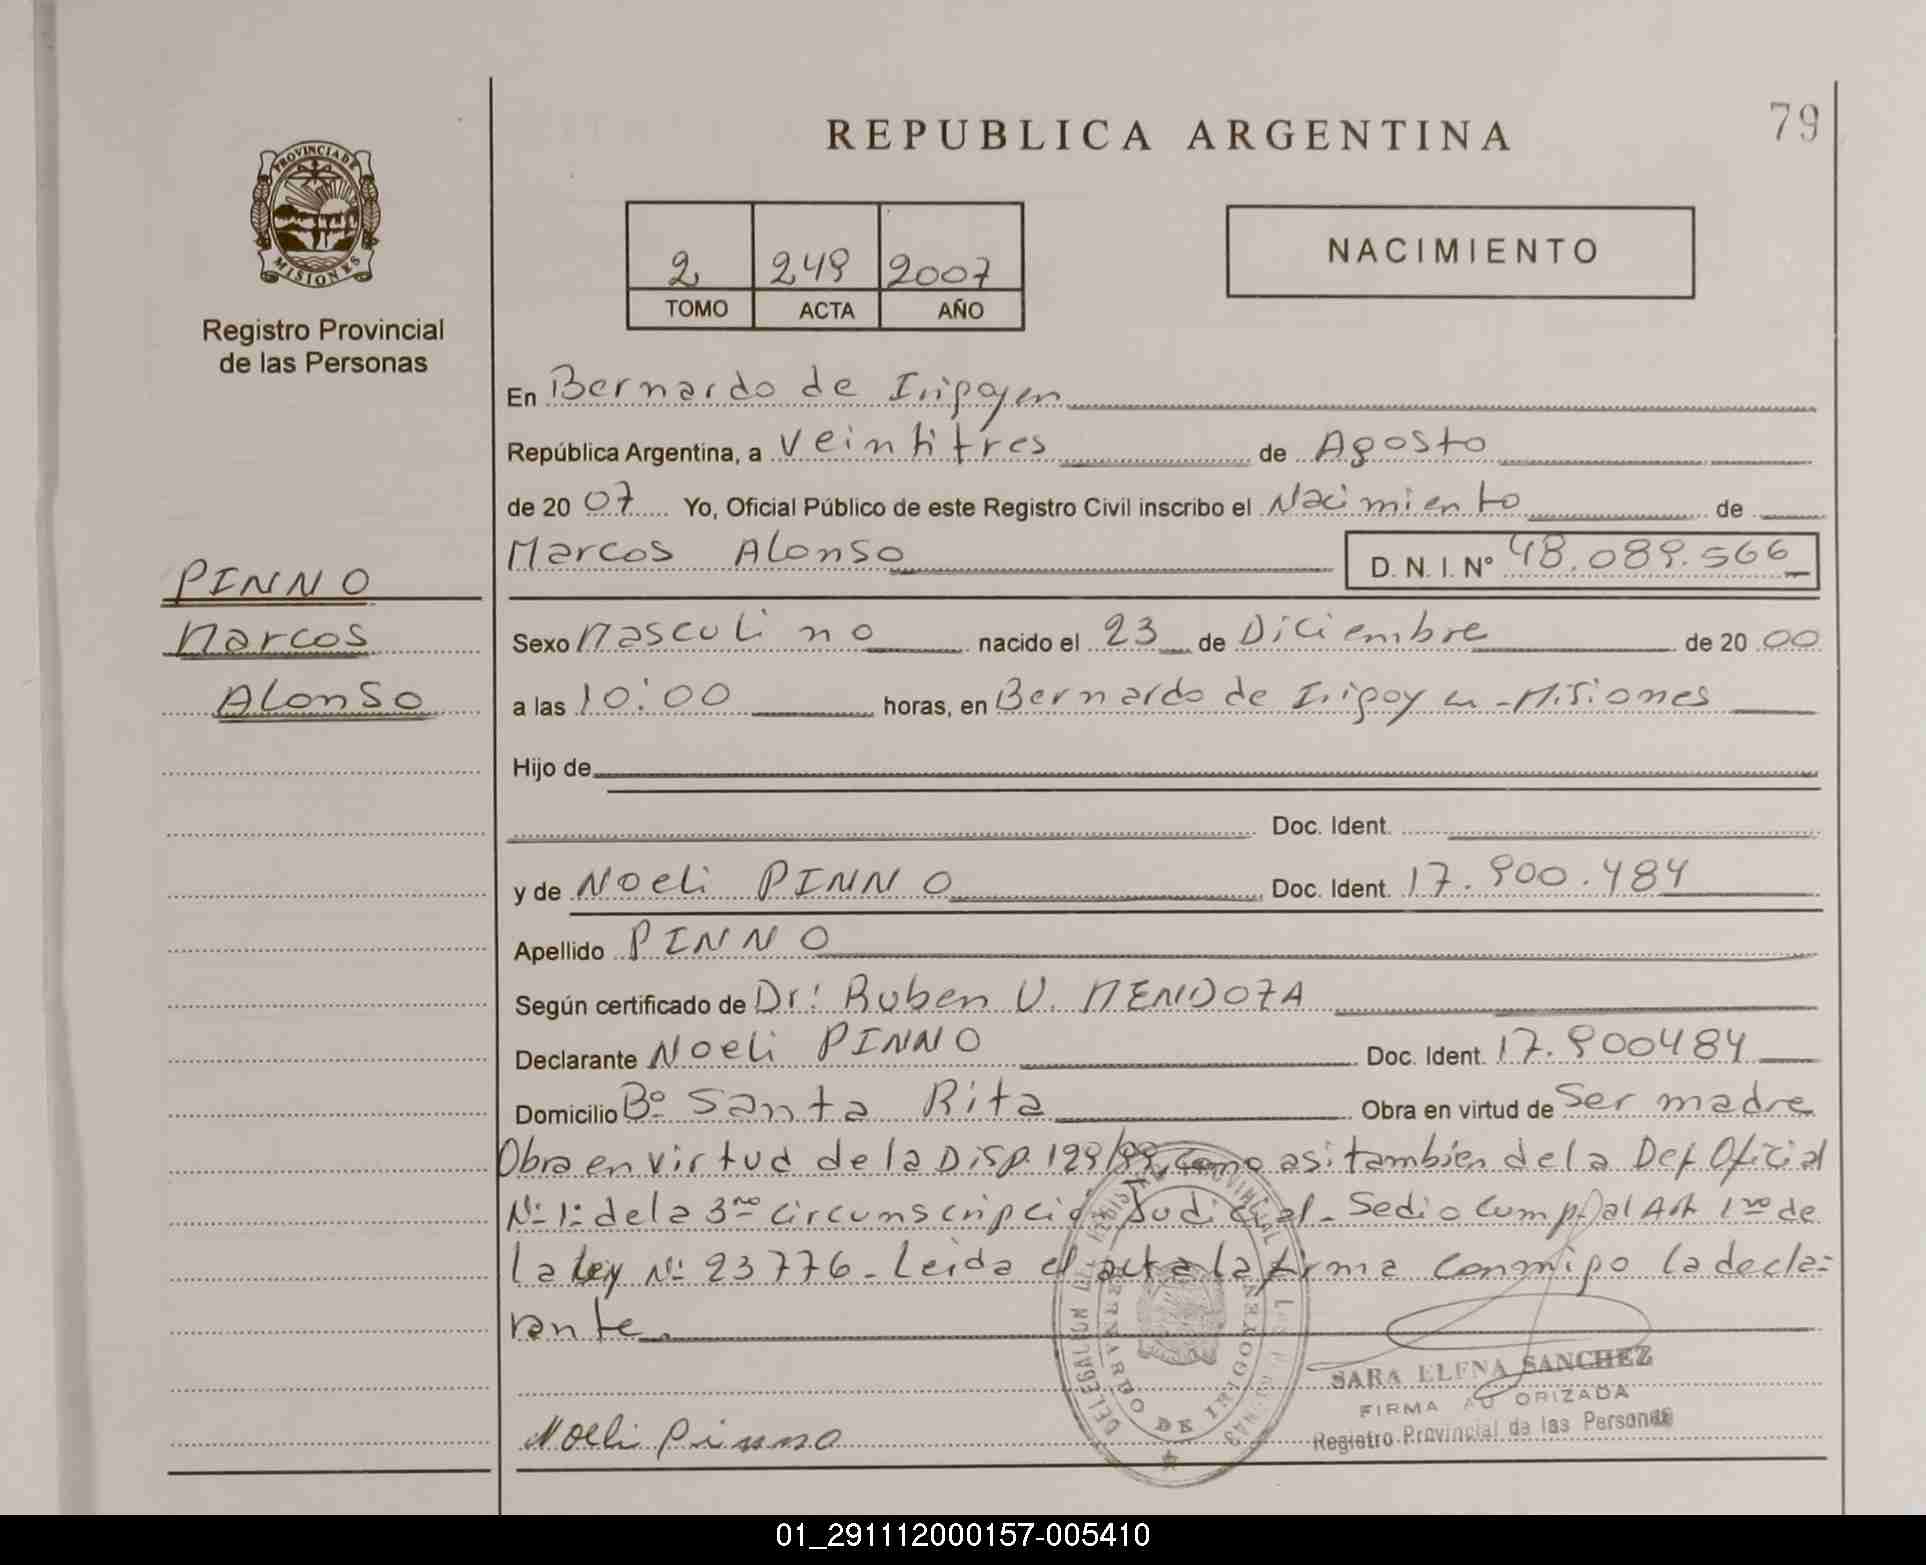 REPUBLICA ARGENTINA
79
PROVINCIA DE
MISIONES
Registro Provincial
de las Personas
2 249 2007
TOMO ACTA AÑO
NACIMIENTO
En Bernardo de Irigoyen
República Argentina, a Veintitres de Agosto
de 2007 Yo, Oficial Público de este Registro Civil inscribo el Nacimiento de
Marcos Alonso D. N. I. Nº 48.089.566
PINNO
Marcos
Alonso
Sexo Masculino nacido el 23 de Diciembre de 2000
a las 10:00 horas, en Bernardo de Irigoyen - Misiones
Hijo de
Doc. Ident.
y de Noeli PINNO Doc. Ident. 17.900.484
Apellido PINNO
Según certificado de Dr: Ruben V. MENDOZA
Declarante Noeli PINNO Doc. Ident. 17.900484
Domicilio Bº Santa Rita Obra en virtud de Ser madre
Obra en virtud de la Disp. como asi tambien de la Def. Oficial
Nº 1º de la 3ra circunscripción Judicial - Se dio cumpl al Art 1ro de
la ley Nº 23776 - Leida el acta la firma conmigo la decla-
rante.
DELEGACION DEL REGISTRO PROVINCIAL DE LAS PERSONAS
BERNARDO DE IRIGOYEN
SARA ELENA SANCHEZ
FIRMA AUTORIZADA
Registro Provincial de las Personas
Noeli Pinno
01_291112000157-005410